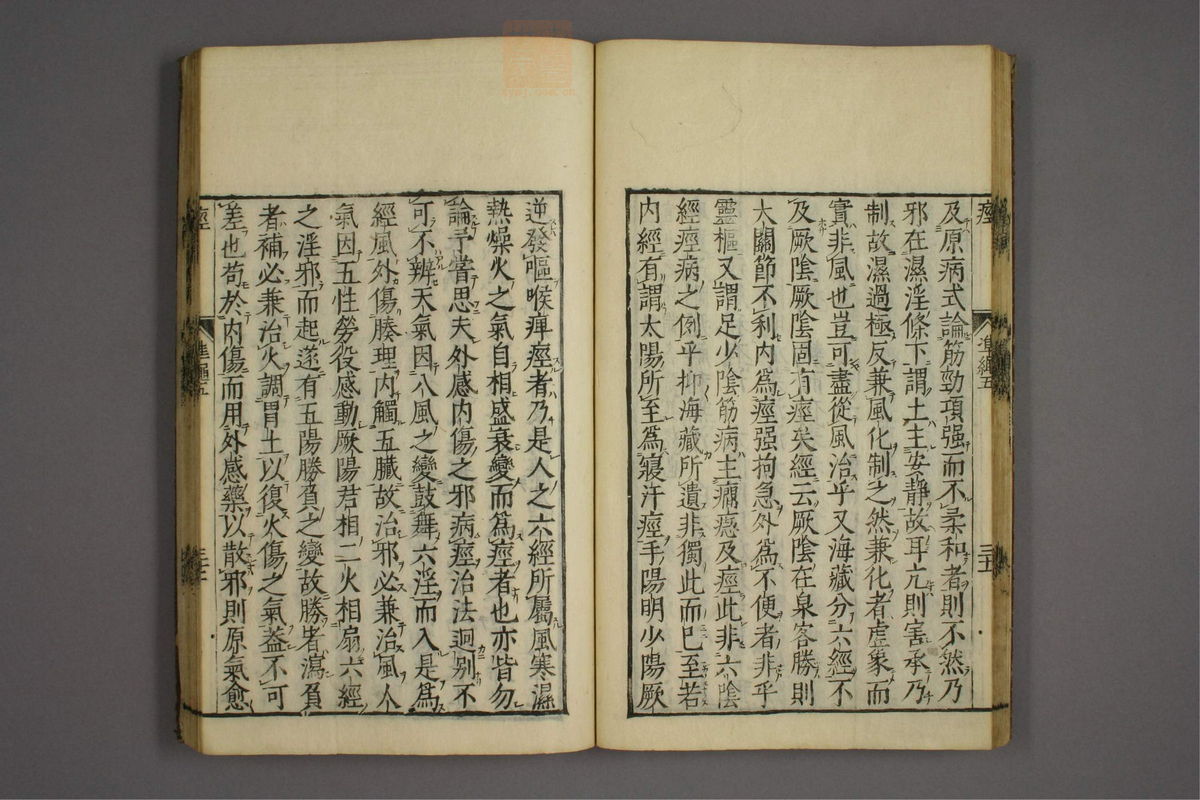 痙
準繩五
三十五
及原病式論筋勁項强而不柔和者則不然乃
邪在濕淫條下謂土主安靜故耳亢則害承乃
制故濕過極反兼風化制之然兼化者虛象而
實非風也豈可盡從風治乎又海藏分六經不
及厥陰厥陰固有痙矣經云厥陰在泉客勝則
大關節不利内爲痙强拘急外爲不便者非乎
靈樞又謂足少陰筋病主癎瘛及痙此非六陰
經痙病之例乎抑海藏所遺非獨此而已至若
内經有謂太陽所至爲寢汗痙手陽明少陽厥
逆發嘔喉痺痙者乃是人之六經所屬風寒濕
熱燥火之氣自相盛衰變而爲痙者也亦皆勿
論予嘗思夫外感内傷之邪病痙治法迥别不
可不辨天氣因八風之變鼓舞六淫而入是爲
經風外傷腠理内觸五臟故治邪必兼治風人
氣因五性勞役感動厥陽君相二火相扇六經
之淫邪而起遂有五陽勝負之變故勝者瀉負
者補必兼治火調胃土以復火傷之氣葢不可
差也苟於内傷而用外感藥以散邪則原氣愈
痙
準繩五